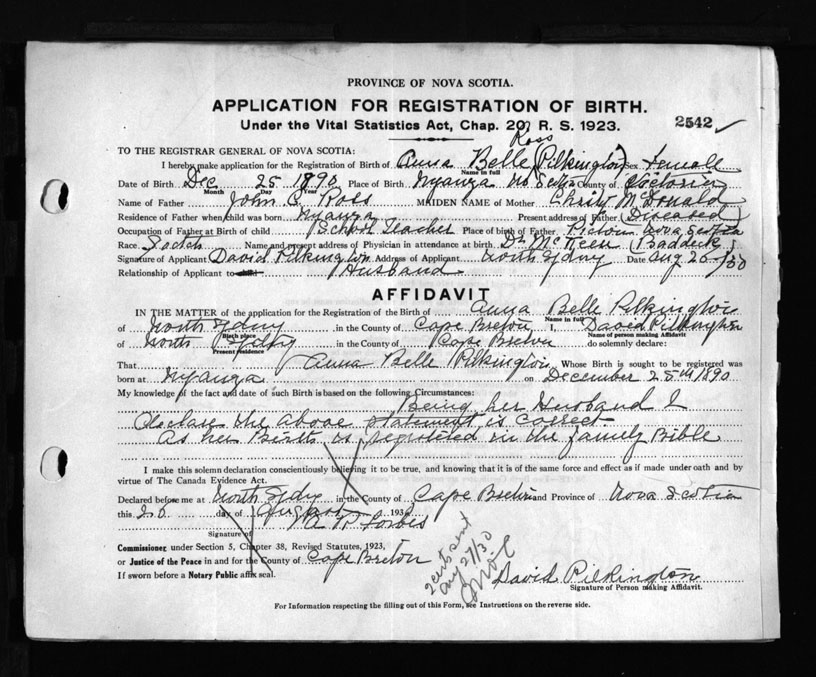 PROVINCE OF NOVA SCOTIA.
APPLICATION FOR REGISTRATION OF BIRTH.
Under the Vital Statistics Act, Chap. 20, R. S. 1923.
2542 ✓
Ross
TO THE REGISTRAR GENERAL OF NOVA SCOTIA:
I hereby make application for the Registration of Birth of Anna Belle (Pilkington) Sex Female
Name in full
Date of Birth Dec 25 1890 Place of Birth Nyanza County of Victoria
Month Day Year
Name of Father John C Ross MAIDEN NAME of Mother Christy McDonald
Residence of Father when child was born Nyanza Present address of Father (Diseased)
Occupation of Father at Birth of child School Teacher Place of birth of Father Pictou Nova Scotia
Race. Scotch Name and present address of Physician in attendance at birth Dr McKeen (Baddeck)
Signature of Applicant David Pilkington Address of Applicant North Sydney Date Aug 26/30
Relationship of Applicant to child Husband
AFFIDAVIT
IN THE MATTER of the application for the Registration of the Birth of Anna Belle Pilkington
Name in full
of North Sydney in the County of Cape Breton, I, David Pilkington
Birth place Name of person making Affidavit
of North Sydney in the County of Cape Breton do solemnly declare:
Present residence
That Anna Belle Pilkington Whose Birth is sought to be registered was
born at Nyanza on December 25th 1890
My knowledge of the fact and date of such Birth is based on the following Circumstances:
Being her Husband I
Declare the above statement is correct.
As her Birth is registered in the family Bible
I make this solemn declaration conscientiously believing it to be true, and knowing that it is of the same force and effect as if made under oath and by
virtue of The Canada Evidence Act.
Declared before me at North Sydney in the County of Cape Breton and Province of Nova Scotia
this 26 day of August 1930
A R Forbes
Signature of
Commissioner under Section 5, Chapter 38, Revised Statutes, 1923,
or Justice of the Peace in and for the County of Cape Breton
If sworn before a Notary Public affix seal.
2 cert sent
Aug 27/30
David Pilkington
Signature of Person making Affidavit.
For Information respecting the filling out of this Form, see Instructions on the reverse side.